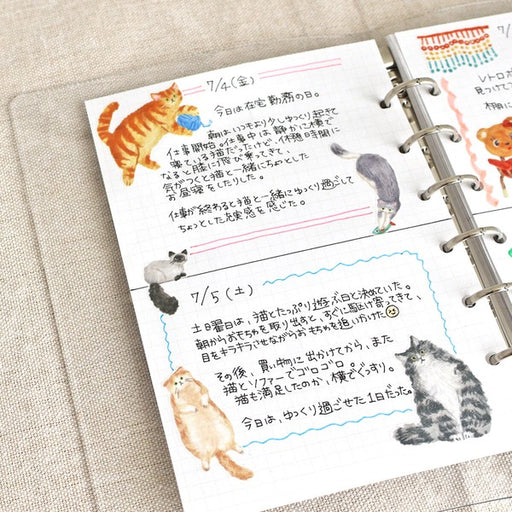 7/4(金)
今日は在宅勤務の日。
朝はいつもより少しゆっくり起きて
仕事開始。仕事中は、静かに横で
寝ている猫だったけど、休憩時間に
なると膝に飛び乗ってきて、
気がつくと猫と一緒にちょっと
お昼寝をしたりした。
仕事が終わると猫と一緒にゆっくり過ごして
ちょっとした充実感を感じた。
7/5(土)
土曜日は、猫とたっぷり遊ぶ日と決めていた。
朝からおもちゃを取り出すと、すぐに駆け寄ってきて、
目をキラキラさせながらおもちゃを追いかけた
その後、買い物に出かけてから、また
猫とソファーでゴロゴロ。
猫も満足したのか、横でぐっすり。
今日は、ゆっくり過ごせた1日だった。
7/
レトロポ
見つけて